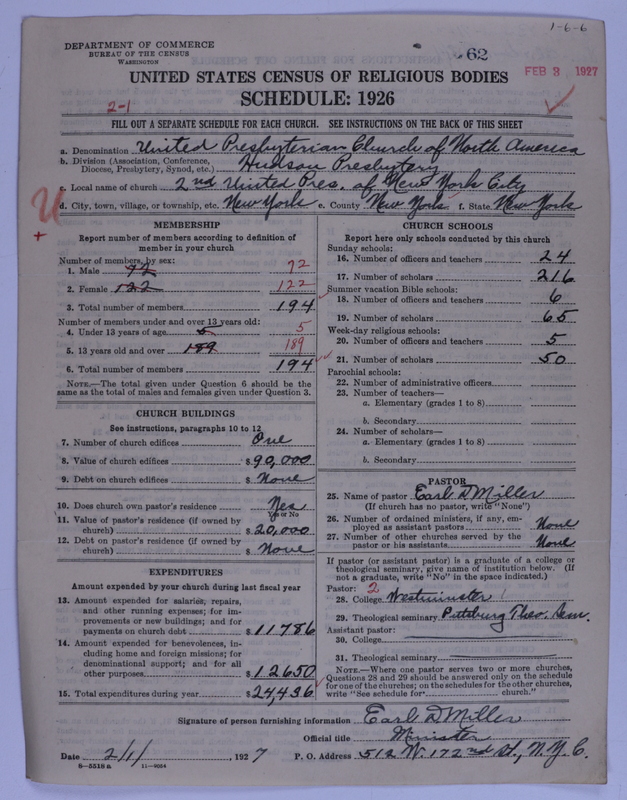 1-6-6
DEPARTMENT OF COMMERCE
BUREAU OF THE CENSUS
WASHINGTON
62
FEB 3 1927
UNITED STATES CENSUS OF RELIGIOUS BODIES
2-1
SCHEDULE: 1926
FILL OUT A SEPARATE SCHEDULE FOR EACH CHURCH. SEE INSTRUCTIONS ON THE BACK OF THIS SHEET
a. Denomination United Presbyterian Church of North America
b. Division (Association, Conference,
Diocese, Presbytery, Synod, etc.) Hudson Presbytery
c. Local name of church 2nd United Pres. of New York City
d. City, town, village, or township, etc. New York e. County New York f. State New York
MEMBERSHIP
Report number of members according to definition of
member in your church
Number of members, by sex:
1. Male 72 72
2. Female 122 122
3. Total number of members 194
Number of members under and over 13 years old:
4. Under 13 years of age 5 5
5. 13 years old and over 189 189
6. Total number of members 194
NOTE.—The total given under Question 6 should be the
same as the total of males and females given under Question 3.
CHURCH BUILDINGS
See instructions, paragraphs 10 to 12
7. Number of church edifices One
8. Value of church edifices $ 90,000
9. Debt on church edifices $ None
10. Does church own pastor's residence Yes
Yes or No
11. Value of pastor's residence (if owned by
church) $ 20,000
12. Debt on pastor's residence (if owned by
church) $ None
EXPENDITURES
Amount expended by your church during last fiscal year
13. Amount expended for salaries, repairs,
and other running expenses; for im-
provements or new buildings; and for
payments on church debt $ 11786
14. Amount expended for benevolences, in-
cluding home and foreign missions; for
denominational support; and for all
other purposes $ 12650
15. Total expenditures during year $ 24,436
CHURCH SCHOOLS
Report here only schools conducted by this church
Sunday schools:
16. Number of officers and teachers 24
17. Number of scholars 216
Summer vacation Bible schools:
18. Number of officers and teachers 6
19. Number of scholars 65
Week-day religious schools:
20. Number of officers and teachers 5
21. Number of scholars 50
Parochial schools:
22. Number of administrative officers
23. Number of teachers—
a. Elementary (grades 1 to 8)
b. Secondary
24. Number of scholars—
a. Elementary (grades 1 to 8)
b. Secondary
PASTOR
25. Name of pastor Earl D Miller
(If church has no pastor, write "None")
26. Number of ordained ministers, if any, em-
ployed as assistant pastors None
27. Number of other churches served by the
pastor or his assistants None
If pastor (or assistant pastor) is graduate of a college or
theological seminary, give name of institution below. (If
not a graduate, write "No" in the space indicated.)
Pastor: 2
28. College Westminster
29. Theological seminary Pittsburg Theo. Sem.
Assistant pastor:
30. College
31. Theological seminary
NOTE.—Where one pastor serves two or more churches,
Questions 28 and 29 should be answered only on the schedule
for one of the churches; on the schedules for the other churches,
write "See schedule for church."
Signature of person furnishing information Earl D Miller
Official title Minister
Date 2/1/, 1927 P. O. Address 512 W. 172nd St., N.Y.C.
8—5518 a 11—9054